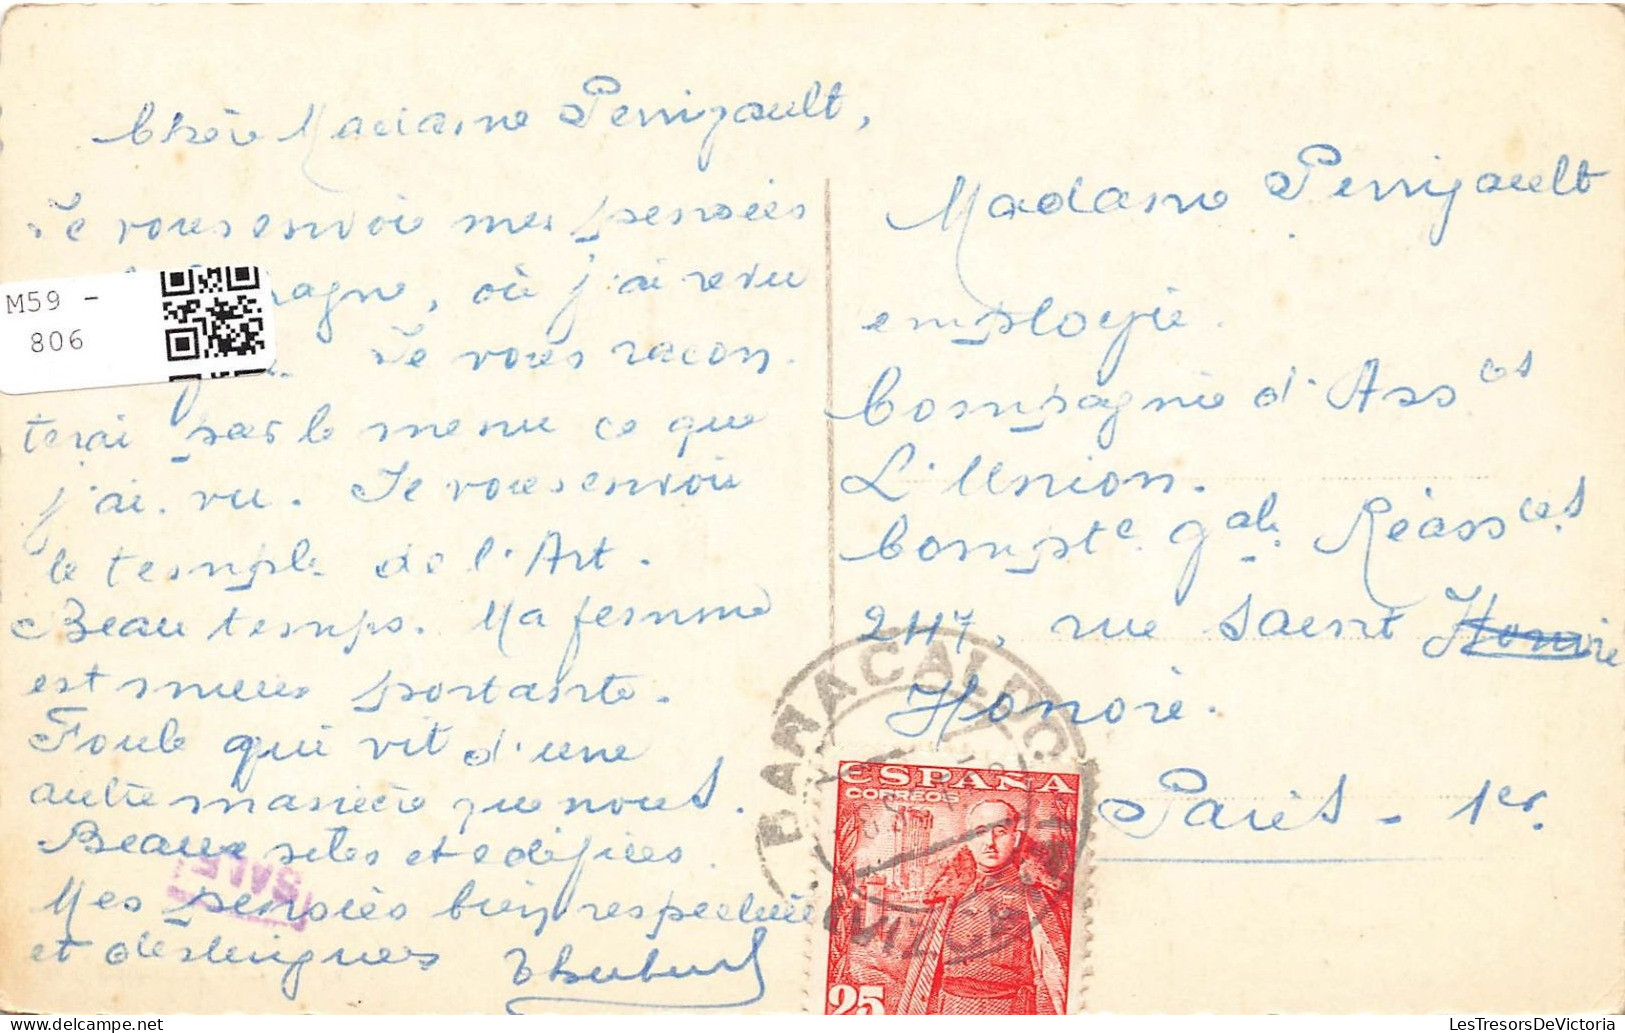 Chère Madame Perrigault,
Je vous envoie mes pensées
agne, où j'ai revu
Je vous racon-
terai par le menu ce que
j'ai vu. Je vous envoie
le temple de l'Art.
Beau temps. Ma femme
est mieux portante.
Foule qui vit d'une
autre manière que nous.
Beaux sites et édifices.
Mes pensées bien respectueuses
et distinguées
M59 -
806
SALE
Madame Perrigault
employée
Compagnie d'Assces
L'Union.
Compte gal Réassces
247, rue Saint Honoré
Honoré.
Paris - 1er.
BARACALDO
VIZCAYA
ESPAÑA
CORREOS
25
LesTresorsDeVictoria